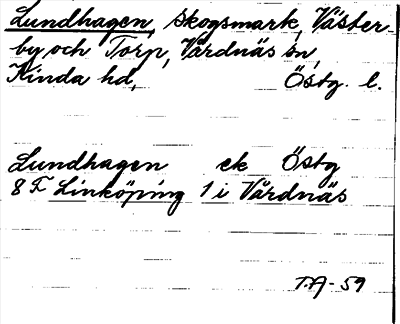 Lundhagen, skogsmark, Väster-
by och Torp, Vårdnäs sn,
Kinda hd, Östg. l.
Lundhagen ek Östg
8 F Linköping 1 i Vårdnäs
T.A-59